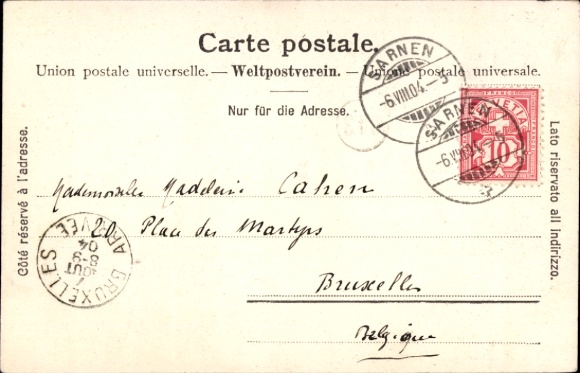 Carte postale.
Union postale universelle. — Weltpostverein. — Unione postale universale.
Nur für die Adresse.
SARNEN
-6.VIII.04.-5
SARNEN
-6.VIII.04.-5
FRANCO
HELVETIA
10
Côté réservé à l'adresse.
Lato riservato all indirizzo.
Mademoiselle Madeleine Cahen
20 Place des Martyrs
Bruxelles
Belgique
BRUXELLES
7
AOUT
8-9
04
ARRIVEE